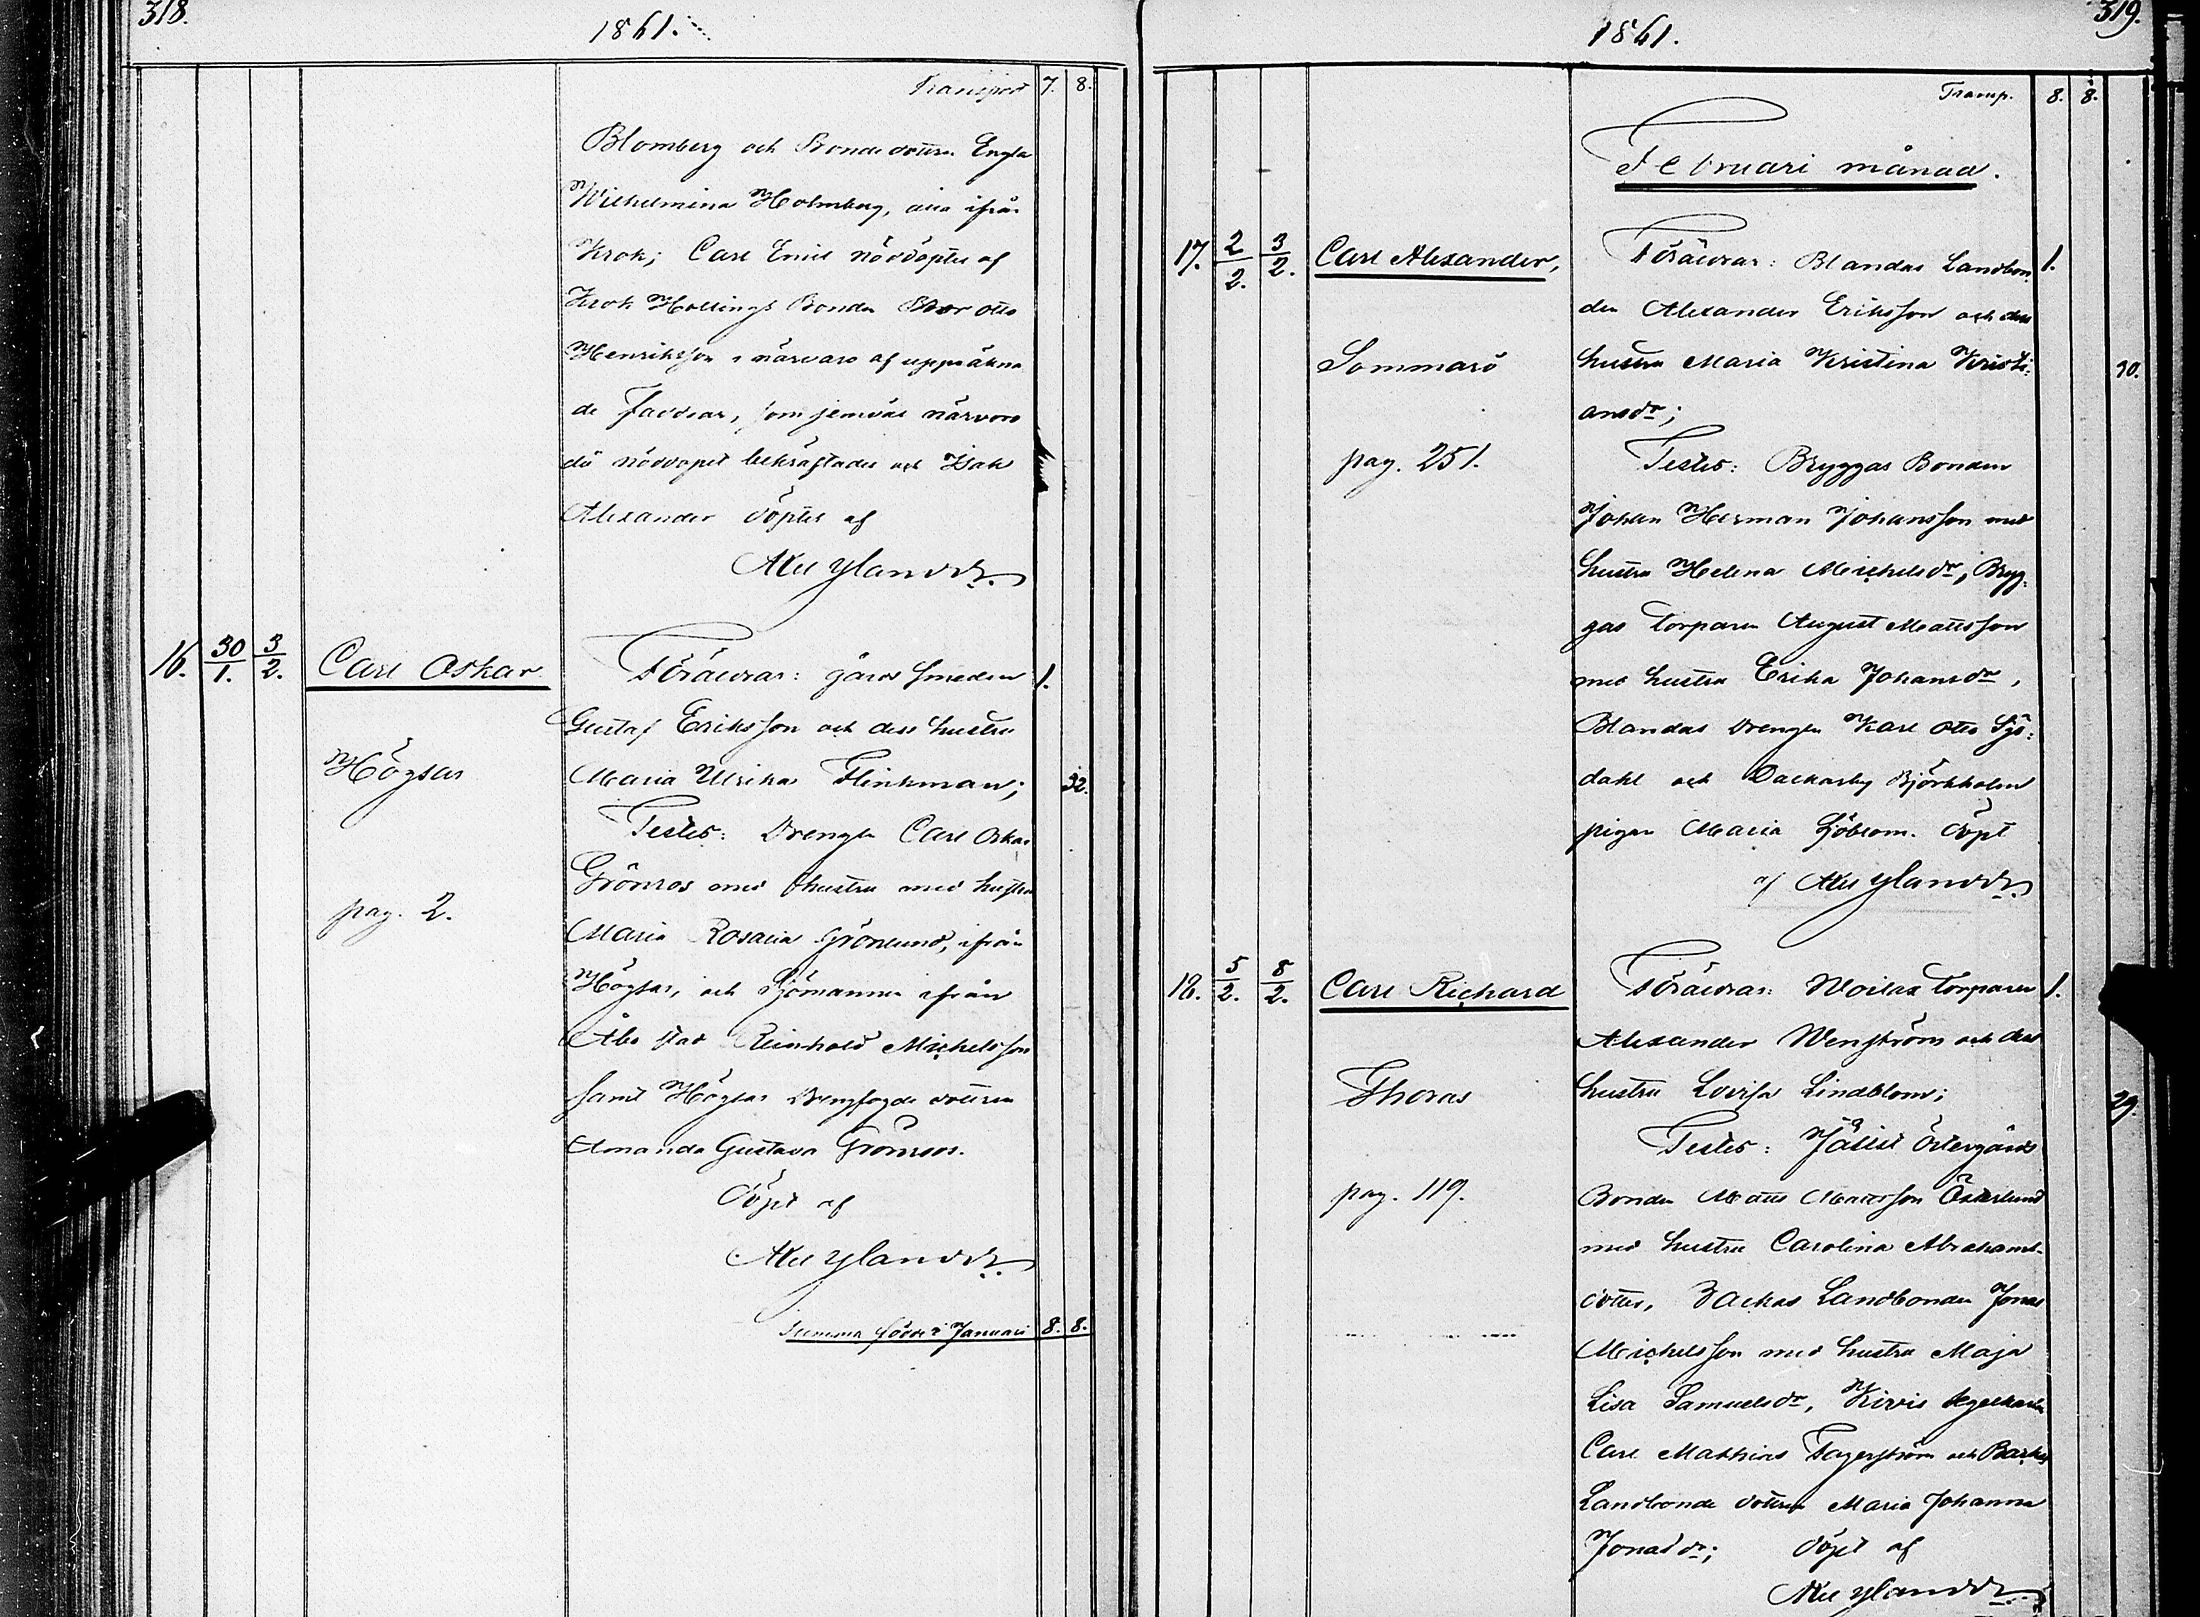 318.
1861.
Transport 7. 8.
Blomberg och Bondedottren Engla
Wilhelmina Holmberg, alla ifrån
Krok; Carl Emil nöddöptes af
Krok Hollings Bonden Otto
Henriksson i närvaro af uppräkna
de Faddrar, som jemväl närvoro
då nöddopet bekräftades och Isak
Alexander döptes af
16. 30/1. 3/2. Carl Oskar Föräldrar: gårds smeden 1.
Gustaf Eriksson och dess hustru
Högsar Maria Ulrika Flinkman; 32.
Testes: Drengen Carl Oskar
Grönros med hustru med hustru
pag. 2.
Maria Rosalia Grönlund, ifrån
Högsar, och Sjömannen ifrån
Åbo stad Reinhold Michelsson
samt Högsar dottren
Amanda Gustava Grönroos.
Döpt af
Summa födde i Januari 8. 8.
319.
1861.
Transp. 8. 8.
Februari månad.
17. 2/2. 3/2. Carl Alexander, Föräldrar: Blandas Landbon
den Alexander Eriksson och dess
Sommarö hustru Maria Kristina Kristi= 30.
ansdr;
pag. 251. Testes: Bryggas Bonden
Johan Herman Johansson med
hustru Helena Michelsdr, Bryg=
gas Torparen August Mattsson
med hustru Erika Johansdr,
Blandas Drengen Karl Otto Sjö=
dahl och Björkholm
pigan Maria Sjöblom. Döpt
af
18. 5/2. 8/2. Carl Richard Föräldrar: Torparen 1.
Alexander Wenström och dess
Thoras hustru Lovisa Lindblom; 29.
Testes: Östergårds
pag. 119. Bonden Matts Mattsson Österlund
med hustru Carolina Abrahams-
dotter, Backas Landbonden Jonas
Michelsson med hustru Maja
Lisa Samuelsdr, Kivis
Carl Mathias Fagerström och Backas
Landbonde dottren Maria Johanna
Jonasdr; Döpt af